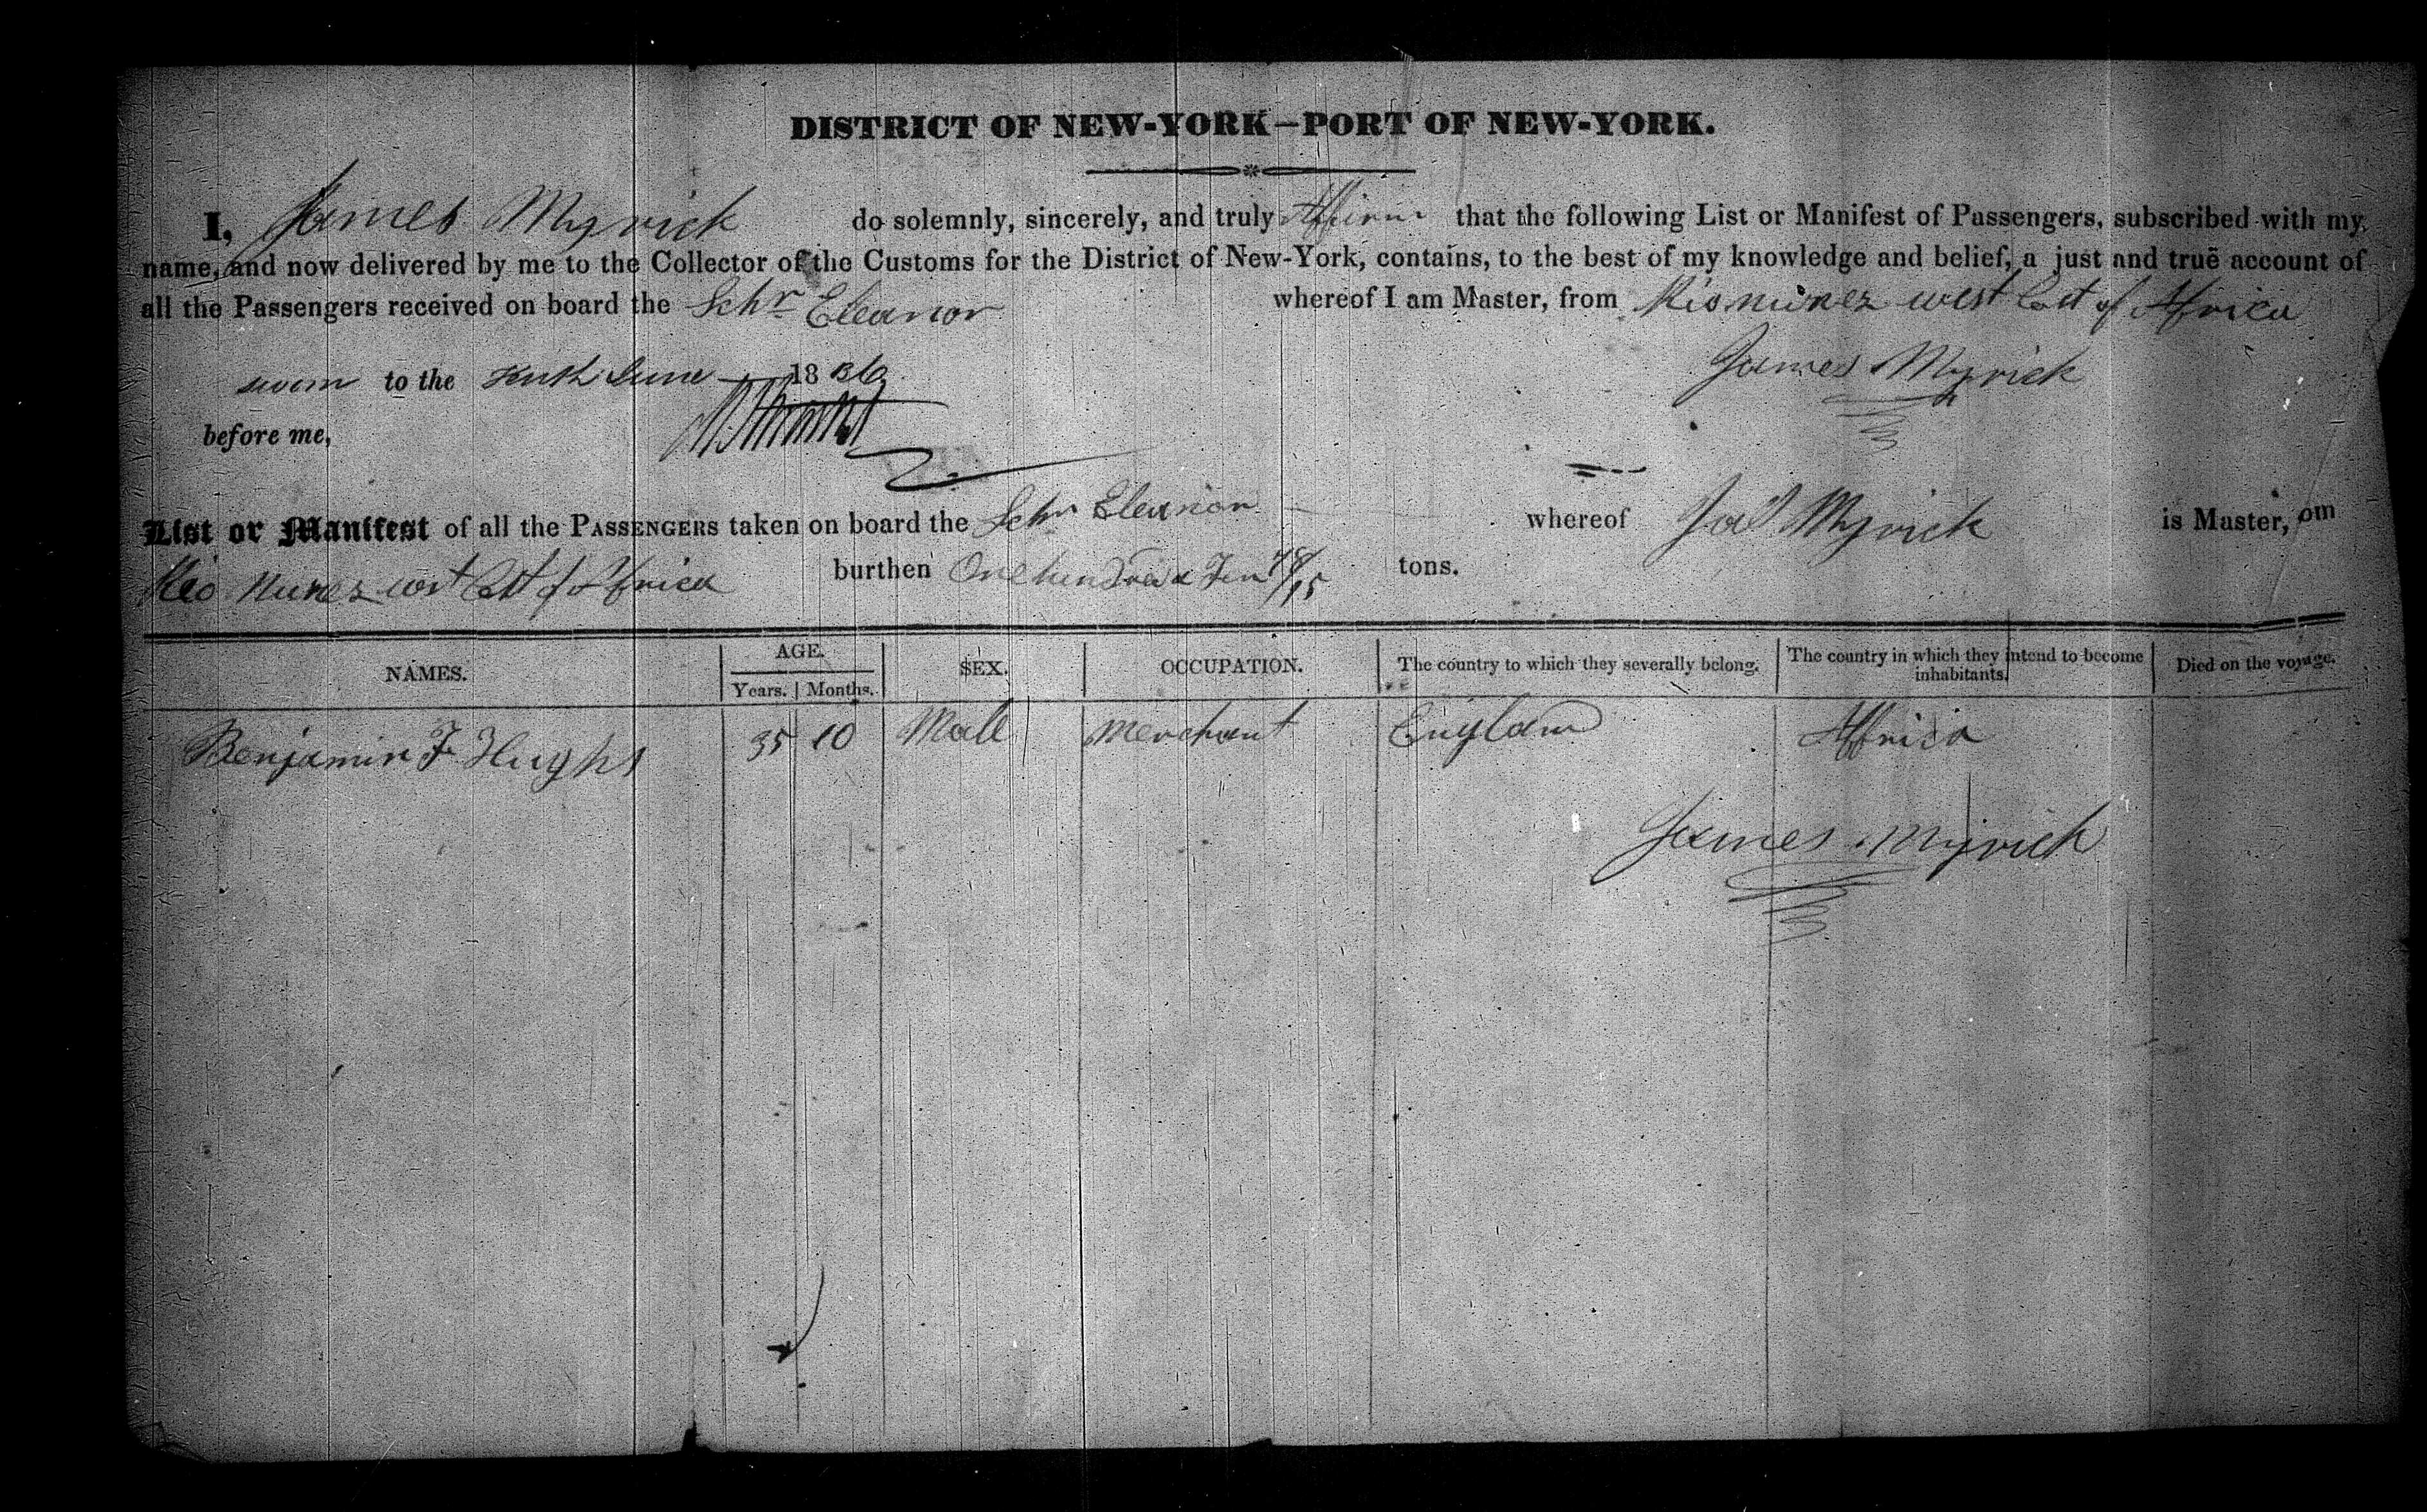 DISTRICT OF NEW-YORK—PORT OF NEW-YORK.
I, James Myrick do solemnly, sincerely, and truly Affirm that the following List or Manifest of Passengers, subscribed with my
name, and now delivered by me to the Collector of the Customs for the District of New-York, contains, to the best of my knowledge and belief, a just and true account of
all the Passengers received on board the Schr Eleanor whereof I am Master, from Rio nunez west Cost of Africa
to the June 1836 James Myrick
before me,
List or Manifest of all the PASSENGERS taken on board the Schr Eleanor whereof Jas Myrick is Master, om
Rio Nunez west Cost of Africa burthen One hundred & Ten tons.
NAMES. AGE. Years. Months. SEX. OCCUPATION. The country to which they severally belong. The country in which they intend to become inhabitants. Died on the voyage.
Benjamin F Hughs 35 10 Male Merchant England Africa
James Myrick